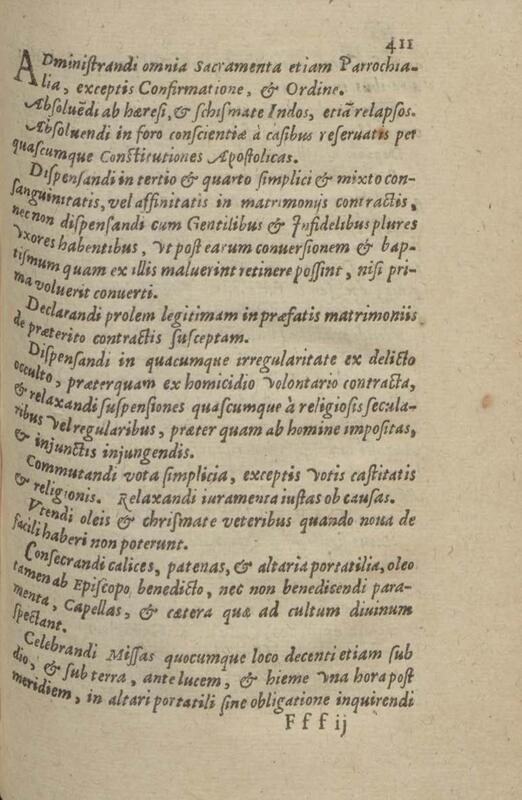 411
ADministrandi omnia Sacramenta etiam Parrochia-
lia, exceptis Confirmatione, & Ordine.
Absoluēdi ab hæresi, & schismate Indos, etiā relapsos.
Absoluendi in foro conscientiæ à casibus reseruatis per
quascumque Constitutiones Apostolicas.
Dispensandi in tertio & quarto simplici & mixto con-
sanguinitatis, vel affinitatis in matrimonijs contractis,
nec non dispensandi cum Gentilibus & Infidelibus plures
vxores habentibus, vt post earum conuersionem & bap-
tismum quam ex illis maluerint retinere possint, nisi pri-
ma voluerit conuerti.
Declarandi prolem legitimam in præfatis matrimoniis
de præterito contractis susceptam.
Dispensandi in quacumque irregularitate ex delicto
occulto, præterquam ex homicidio volontario contracta,
& relaxandi suspensiones quascumque à religiosis secula-
ribus vel regularibus, præter quam ab homine impositas,
& injunctis injungendis.
Commutandi vota simplicia, exceptis votis castitatis
& religionis. Relaxandi iuramenta iustas ob causas.
Vtendi oleis & chrismate veteribus quando noua de
facili haberi non poterunt.
Consecrandi calices, patenas, & altaria portatilia, oleo
tamen ab Episcopo benedicto, nec non benedicendi para-
menta, Capellas, & cætera quæ ad cultum diuinum
spectant.
Celebrandi Missas quocumque loco decenti etiam sub
dio, & sub terra, ante lucem, & hieme vna hora post
meridiem, in altari portatili sine obligatione inquirendi
Fff ij